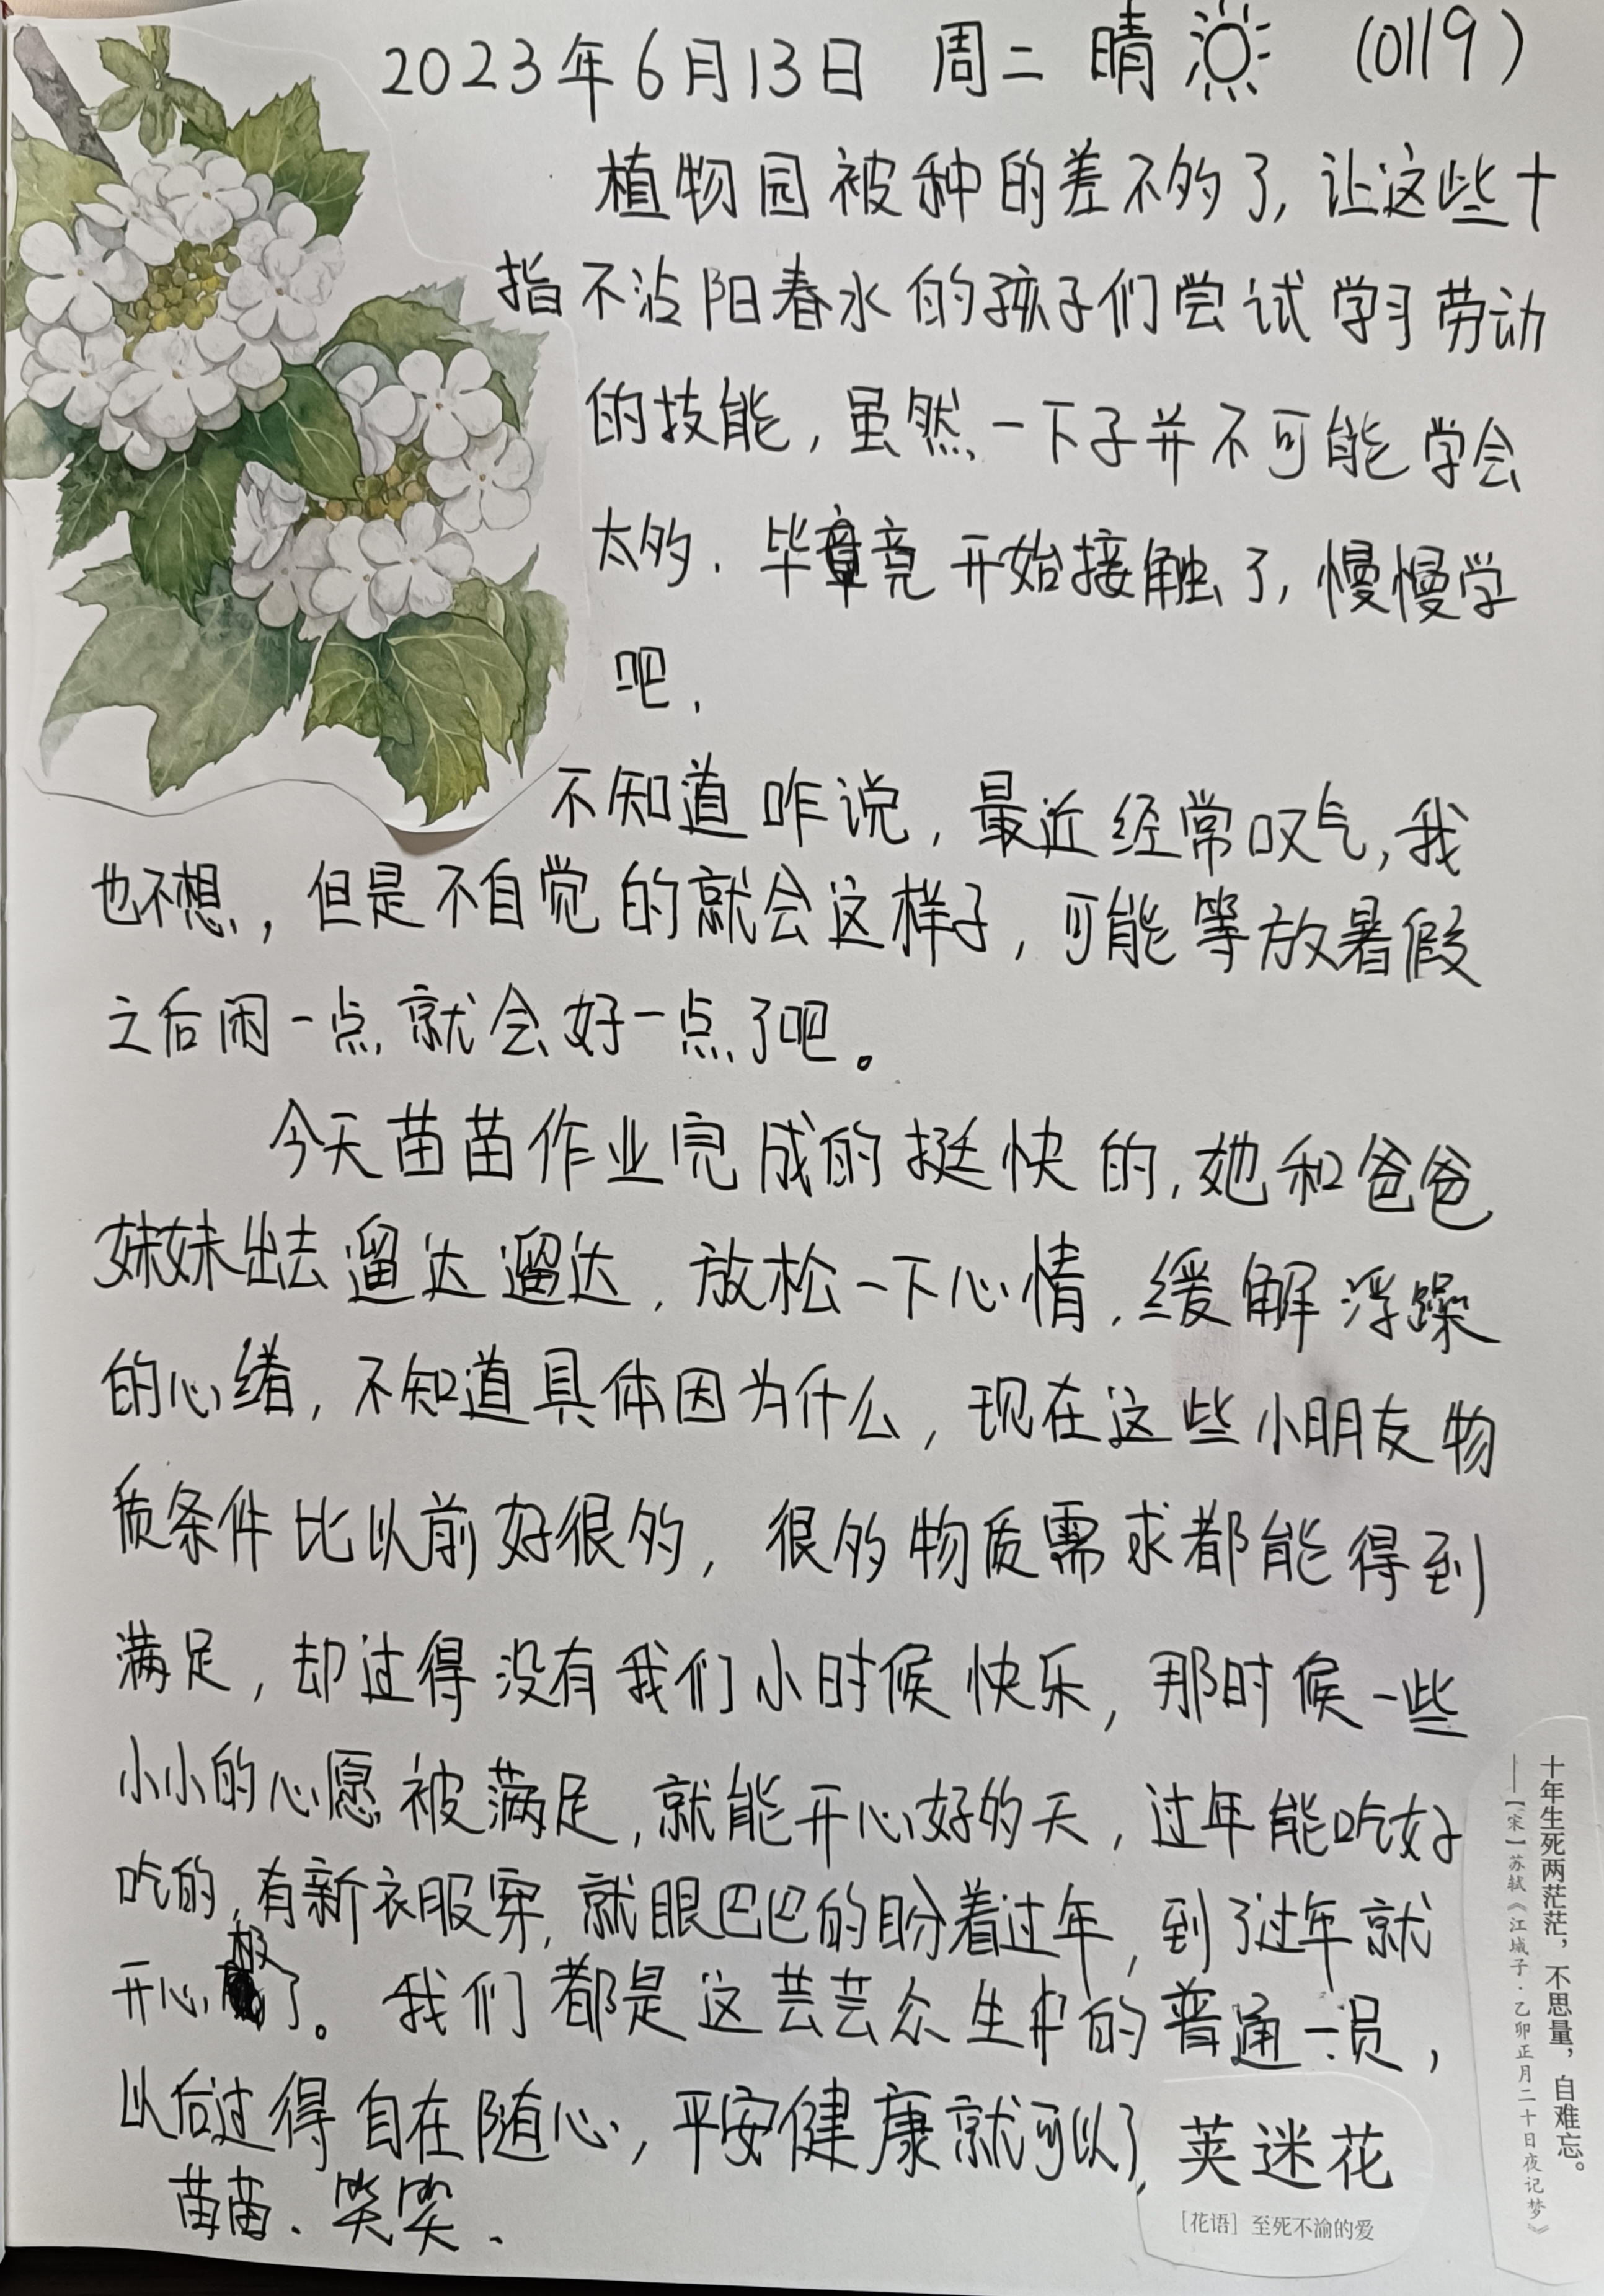 2023年6月13日 周二 晴 (0119)
植物园被种的差不多了,让这些十
指不沾阳春水的孩子们尝试学习劳动
的技能,虽然一下子并不可能学会
太多.毕竟开始接触了,慢慢学
吧.
不知道咋说,最近经常叹气,我
也不想,但是不自觉的就会这样子,可能等放暑假
之后闲一点就会好一点了吧。
今天苗苗作业完成的挺快的,她和爸爸
妹妹出去遛达遛达,放松一下心情.缓解浮躁
的心绪,不知道具体因为什么,现在这些小朋友物
质条件比以前好很多,很多物质需求都能得到
满足,却过得没有我们小时候快乐,那时候一些
小小的心愿被满足,就能开心好多天,过年能吃好
吃的,有新衣服穿,就眼巴巴的盼着过年,到了过年就
开心极了。我们都是这芸芸众生中的普通一员,
以后过得自在随心,平安健康就可以了.
苗苗、笑笑.
荚迷花
[花语] 至死不渝的爱
十年生死两茫茫,不思量,自难忘。
——[宋] 苏轼《江城子·乙卯正月二十日夜记梦》